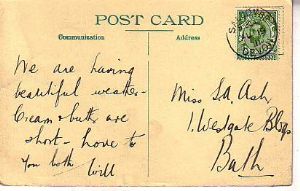 POST CARD
Communication
Address
We are having
beautiful weather
Cream & butter are
short - love to
You both Will
Miss S.A. Ash
1. Westgate Bldgs
Bath
DEVON